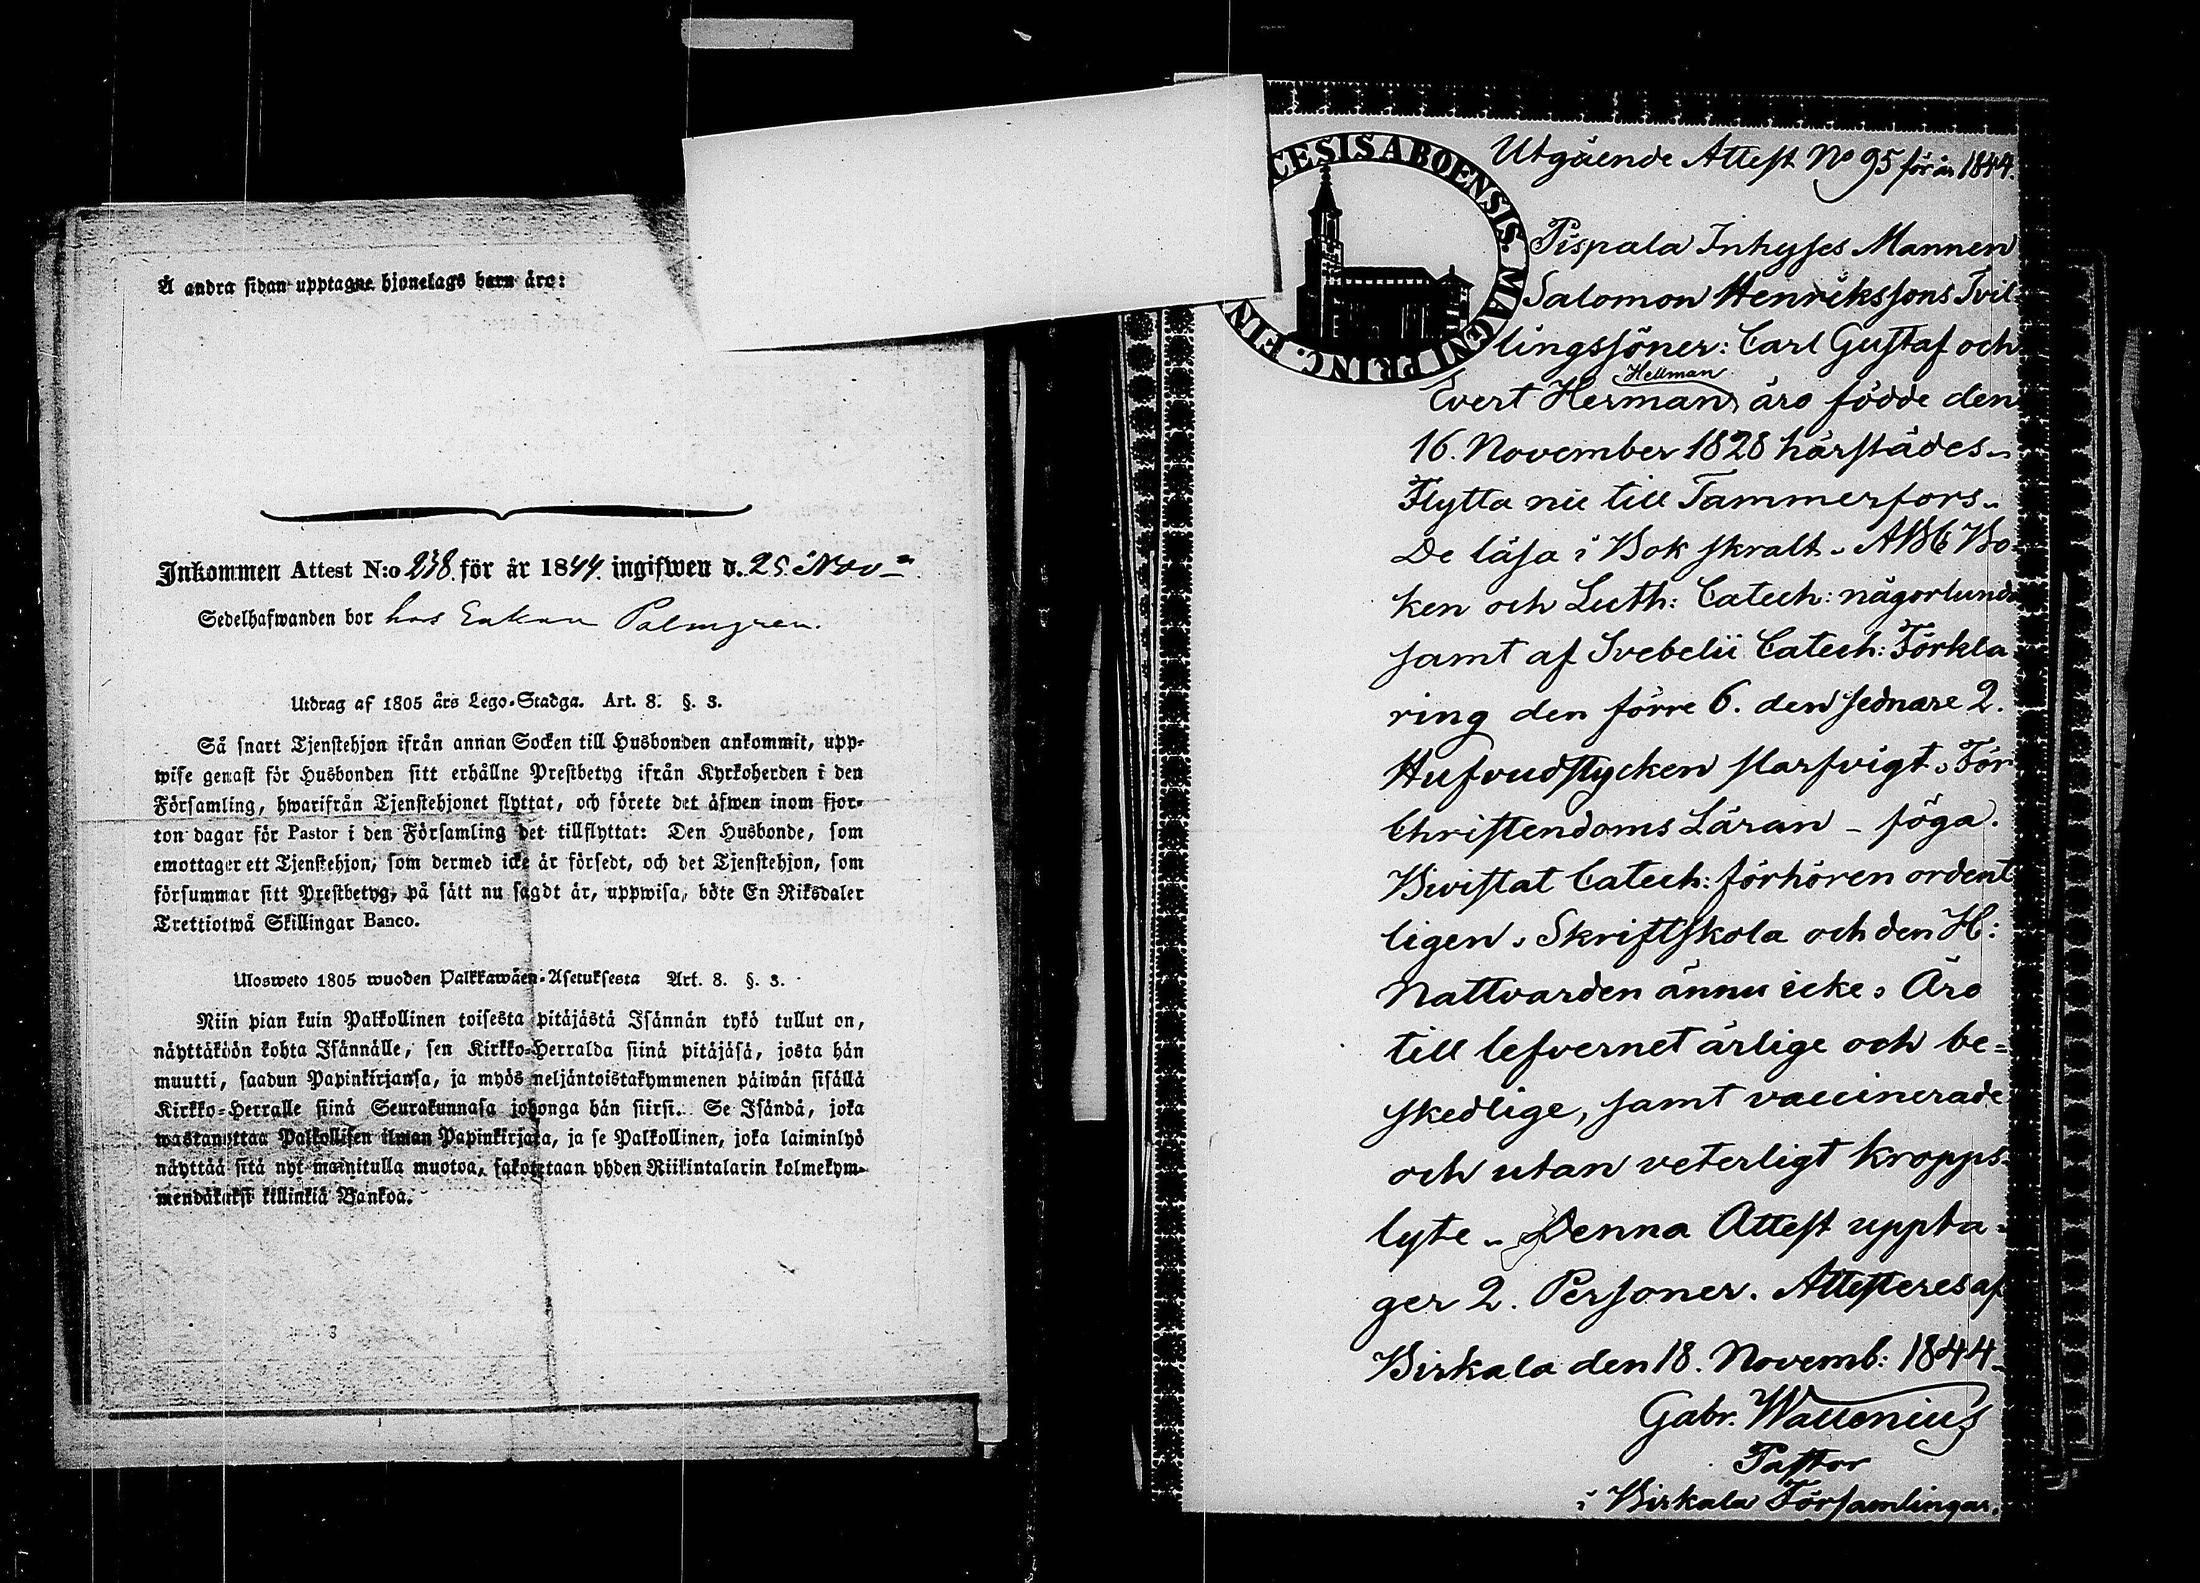 Å andra sidan upptagne hjonelags barn äro:
Inkommen Attest N:o 238. för år 1844. ingifwen d. 25 Nov
Sedelhafwanden bor hos Enkan Palmgren.
Utdrag af 1805 års Lego-Stadga. Art. 8. §. 3.
Så snart Tjenstehjon ifrån annan Socken till Husbonden ankommit, upp-
wise genast för Husbonden sitt erhållne Prestbetyg ifrån Kyrkoherden i den
Församling, hwarifrån Tjenstehjonet flyttat, och förete det äfwen inom fjor-
ton dagar för Pastor i den Församling det tillflyttat: Den Husbonde, som
emottager ett Tjenstehjon, som dermed icke är försedt, och det Tjenstehjon, som
försummar sitt Prestbetyg, på sätt nu sagdt är, uppwisa, böte En Riksdaler
Trettiotwå Skillingar Banco.
Ulosweto 1805 wuoden Palkkawäen-Asetuksesta Art. 8. §. 3.
Niin pian kuin Palkollinen toisesta pitäjästä Isännän tykö tullut on,
näyttäköön kohta Isännälle, sen Kirkko-Herralda siinä pitäjäsä, josta hän
muutti, saadun Papinkirjansa, ja myös neljäntoistakymmenen päiwän sisällä
Kirkko-Herralle siinä Seurakunnasa johonga hän siirsi. Se Isändä, joka
wastanottaa Palkollisen ilman Papinkirjata, ja se Palkollinen, joka laiminlyö
näyttää sitä nyt mainitulla muotoa, sakotetaan yhden Riikintalarin kolmekym-
mendäkaksi killinkiä Bankoa.
CESIS ABOENSIS. MAGNI PRINC. FIN
Utgående Attest No 95 för år 1844.
Pispala Inhyses Mannen
Salomon Henrikssons Tvil-
lingssöner: Carl Gustaf och
Hellman
Evert Herman, äro födde den
16. November 1828 härstädes.
Flytta nu till Tammerfors.
De läsa i Bok skralt. ABC Bo-
ken och Luth: Catech: någorlunda
samt af Svebelii Catech: Förkla
ring den förre 6. den sednare 2.
Hufvudstycken slarfvigt. För
Christendoms Läran – föga.
Bivistat Catech: förhören ordent
ligen. Skriftskola och den H:
Nattvarden ännu icke. Äro
till lefvernet ärlige och be=
skedlige, samt vaccinerade
och utan veterligt kropps-
lyte. Denna Attest uppta-
ger 2. Personer. Attesteres af
Birkala den 18. Novemb: 1844.
Gabr. Wallenius
Pastor
i Birkala Församlingar.